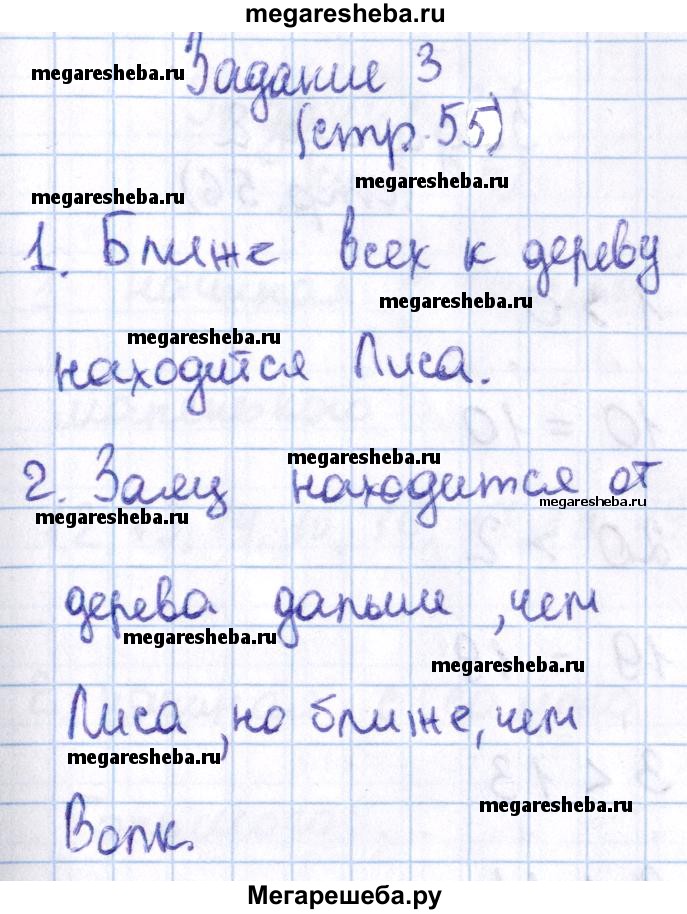 megaresheba.ru
Задание 3
megaresheba.ru
(стр. 55)
megaresheba.ru
megaresheba.ru
1. Ближе всех к дереву
megaresheba.ru
megaresheba.ru
находится Лиса.
megaresheba.ru
2. Заяц находится от
megaresheba.ru
megaresheba.ru
дерева дальше, чем
megaresheba.ru
megaresheba.ru
Лиса, но ближе, чем
megaresheba.ru
megaresheba.ru
Волк.
Мегарешеба.ру